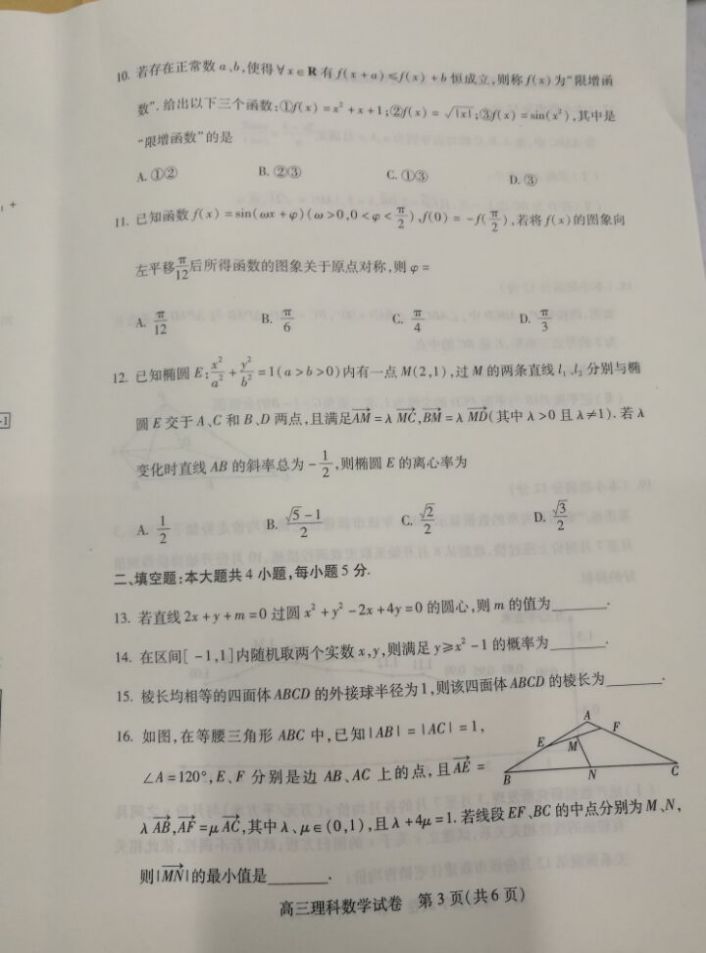 10. 若存在正常数 a、b,使得∀x∈R 有 f(x+a)≤f(x)+b 恒成立,则称 f(x) 为“限增函
数”. 给出以下三个函数:①f(x)=x²+x+1;②f(x)=√|x|;③f(x)=sin(x²),其中是
“限增函数”的是
A. ①② B. ②③ C. ①③ D. ③
11. 已知函数 f(x)=sin(ωx+φ)(ω>0,0<φ<π/2),f(0)=-f(π/2),若将 f(x) 的图象向
左平移π/12后所得函数的图象关于原点对称,则 φ=
A. π/12 B. π/6 C. π/4 D. π/3
12. 已知椭圆 E:x²/a²+y²/b²=1(a>b>0)内有一点 M(2,1),过 M 的两条直线 l₁、l₂ 分别与椭
圆 E 交于 A、C 和 B、D 两点,且满足AM→=λMC→,BM→=λMD→(其中 λ>0 且 λ≠1). 若 λ
变化时直线 AB 的斜率总为-1/2,则椭圆 E 的离心率为
A. 1/2 B. (√5-1)/2 C. √2/2 D. √3/2
二、填空题:本大题共 4 小题,每小题 5 分.
13. 若直线 2x+y+m=0 过圆 x²+y²-2x+4y=0 的圆心,则 m 的值为______.
14. 在区间[-1,1]内随机取两个实数 x,y,则满足 y≥x²-1 的概率为______.
15. 棱长均相等的四面体 ABCD 的外接球半径为 1,则该四面体 ABCD 的棱长为______.
16. 如图,在等腰三角形 ABC 中,已知|AB|=|AC|=1,
∠A=120°,E、F 分别是边 AB、AC 上的点,且AE→=
λAB→,AF→=μAC→,其中 λ、μ∈(0,1),且 λ+4μ=1. 若线段 EF、BC 的中点分别为 M、N,
则|MN→|的最小值是______.
A
F
E
M
B
N
C
高三理科数学试卷 第 3 页(共 6 页)